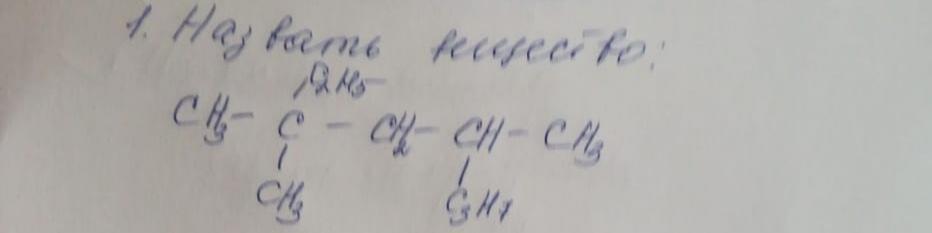 1. Назвать вещество:
C2H5
CH3 - C - CH2 - CH - CH3
CH3 C3H7